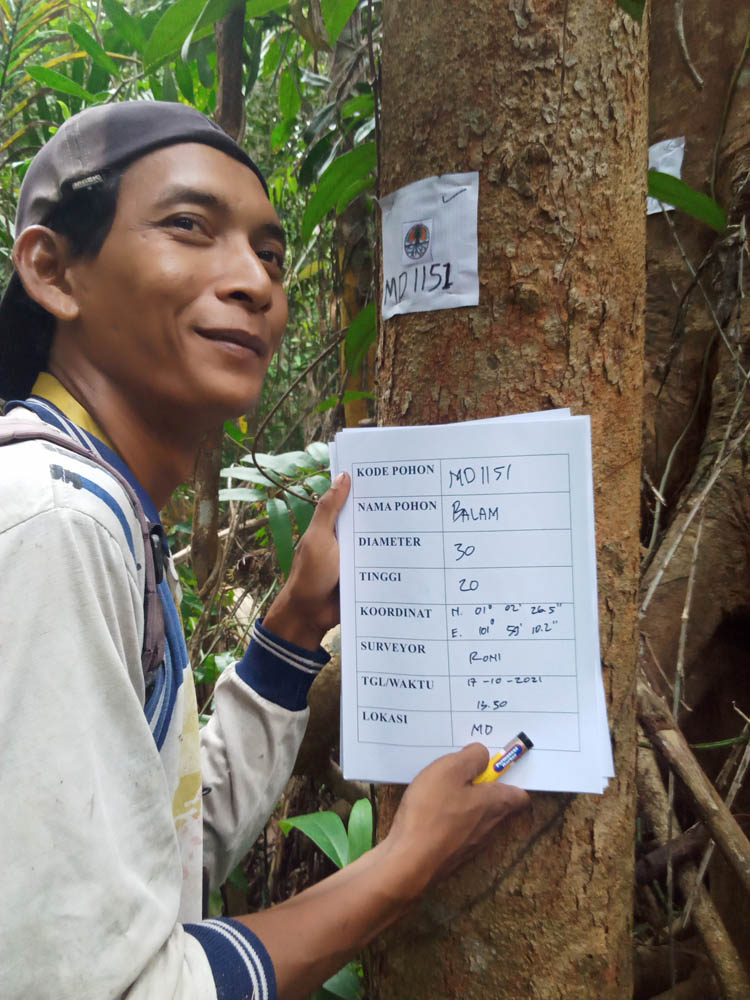 MD1151
KODE POHON MD1151
NAMA POHON BALAM
DIAMETER 30
TINGGI 20
KOORDINAT N. 01° 02' 26.5"
E. 101° 59' 10.2"
SURVEYOR RONI
TGL/WAKTU 17-10-2021
13.50
LOKASI MD